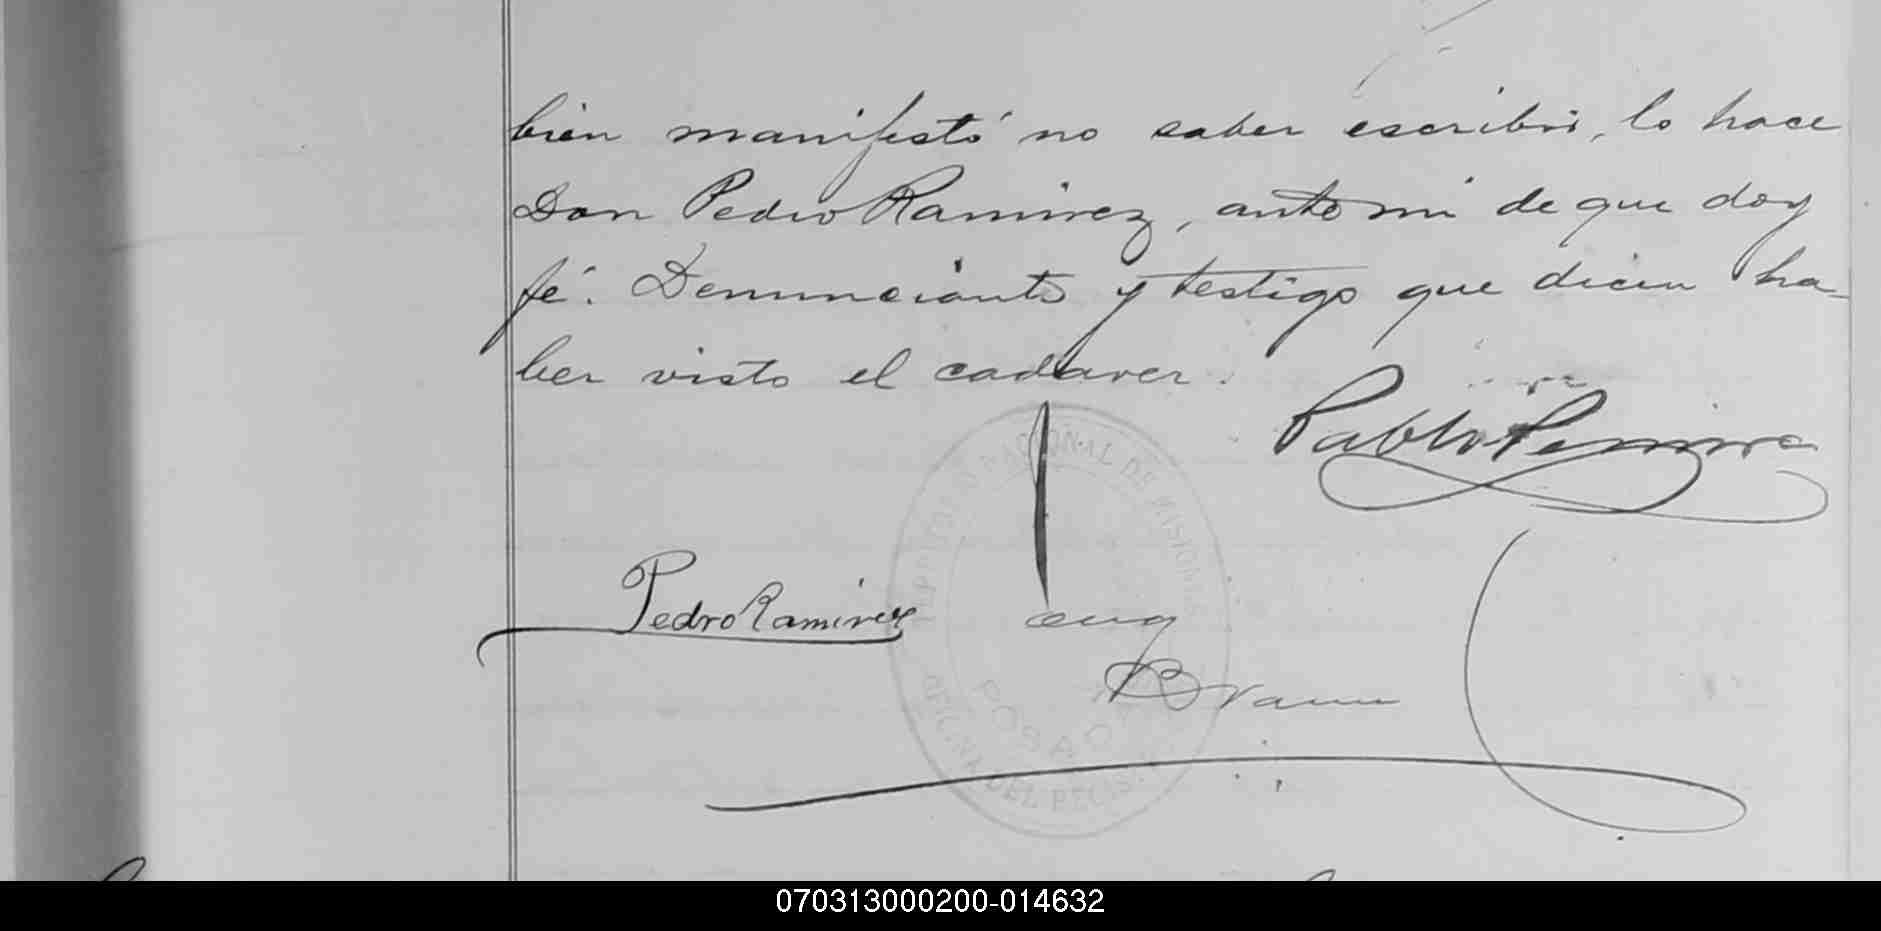 bien manifestó no saber escribir, lo hace
Don Pedro Ramirez, ante mi de que doy
fé. Denunciante y testigo que dicen ha-
ber visto el cadaver.
Pablo
Pedro Ramirez
TERRITORIO NACIONAL DE MISIONES
POSADAS
OFICINA DEL REGIS
070313000200-014632